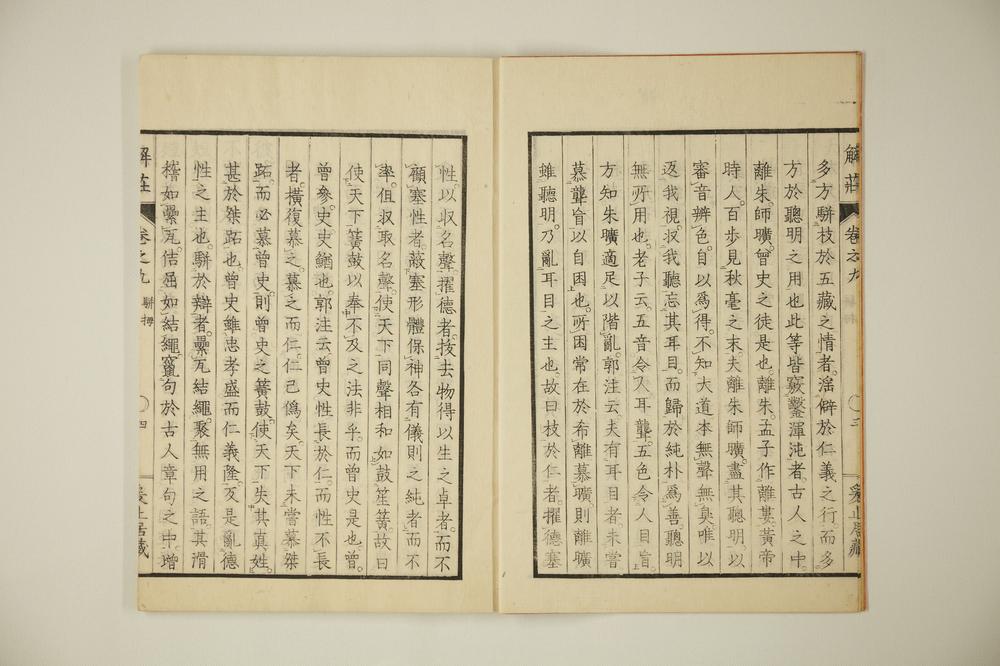 多方駢枝於五藏之情者。滛僻於仁義之行而多
方於聰明之用也此等皆竅鑿渾沌者。古人之中。
離朱。師曠。曾史之徒是也。離朱。孟子作離婁。黃帝
時人。百步見秋毫之末。夫離朱師曠。盡其聰明。以
審音辨色。自以爲得。不知大道本無聲無臭。唯以
返我視。収我聽。忘其耳目。而歸於純朴爲善。聰明
無所用也。老子云。五音令人耳聾。五色令人目盲。
方知朱曠適足以階亂。郭注云。夫有耳目者。未嘗
慕聾盲以自困也。所困常在於希離慕曠。則離曠
雖聽明。乃亂耳目之主也。故曰枝於仁者。擢德塞
解莊
卷之九
駢拇
三
性。以収名聲。擢德者。拔去物得以生之卓者。而不
顧塞性者。蔽塞形體保神各有儀則之純者。而不
率。但収取名聲。使天下同聲相和如鼓笙簧故曰
使天下簧鼓以奉不及之法非乎。而曾史是也。曾。
曾參。史。史鰌也。郭注云。曾史性長於仁。而性不長
者。橫復慕之。慕之而仁。仁已僞矣。天下未嘗慕桀
跖。而必慕曾史。則曾史之簧鼓。使天下失其真性。
甚於桀跖也。曾史雖忠孝盛而仁義隆。反是亂德
性之主也。駢於辯者。纍瓦結繩。聚無用之語。其滑
稽如纍瓦。佶屈如結繩。竄句於古人章句之中。增
解莊
卷之九
駢拇
四